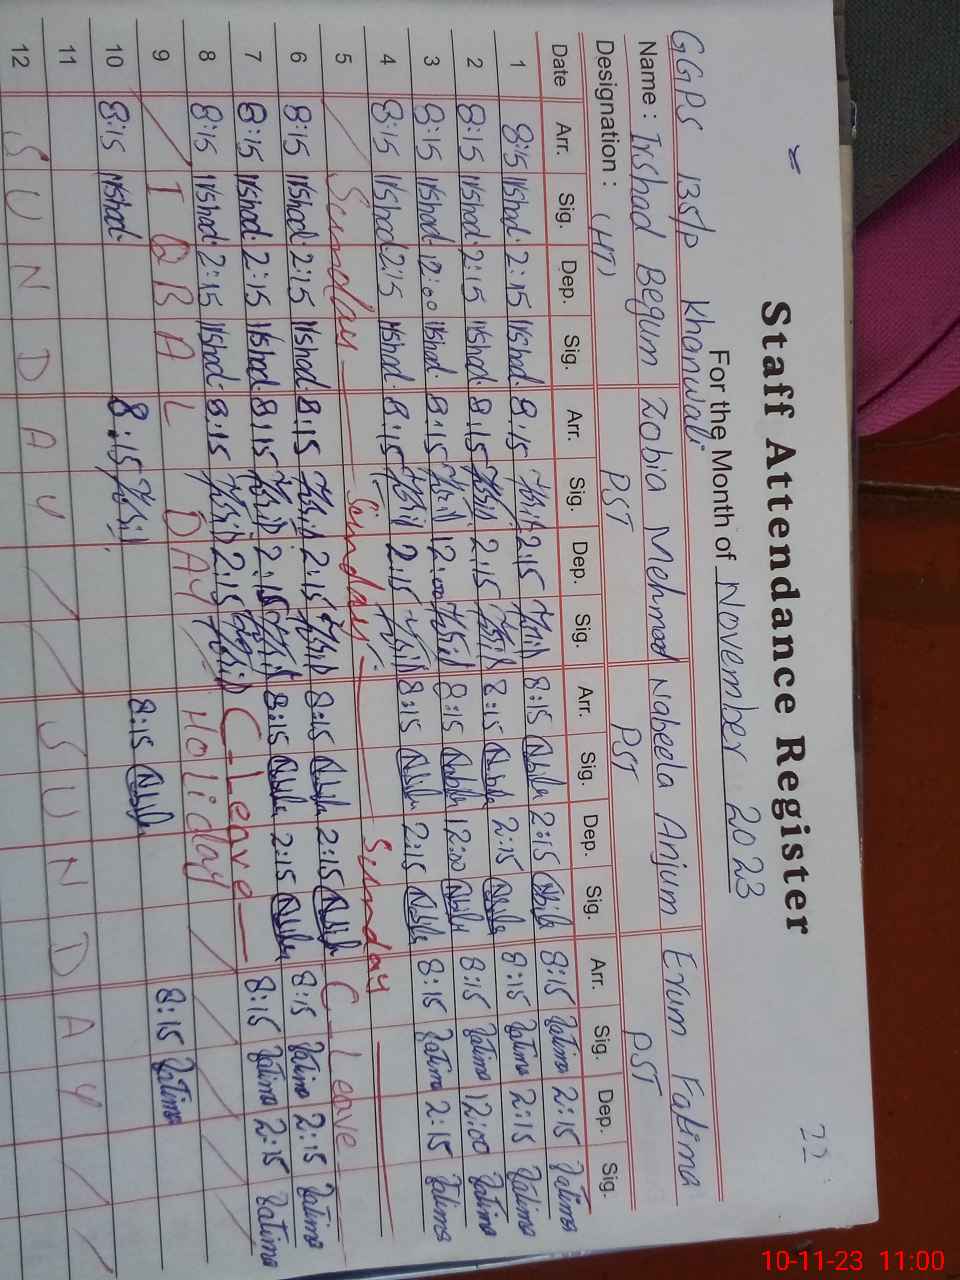 22
Staff Attendance Register
For the Month of November 2023
GGPS 135/P Khanwali
Name : Irshad Begum Zobia Mehmood Nabeela Anjum Erum Fatima
Designation : (HT) PST PST PST
Date Arr. Sig. Dep. Sig. Arr. Sig. Dep. Sig. Arr. Sig. Dep. Sig. Arr. Sig. Dep. Sig.
1 8:15 Irshad. 2:15 Irshad. 8:15 2:15 8:15 Nabila 2:15 Nabila 8:15 Fatima 2:15 Fatima
2 8:15 Irshad. 2:15 Irshad. 8:15 2:15 8:15 Nabila 2:15 Nabila 8:15 Fatima 2:15 Fatima
3 8:15 Irshad. 12:00 Irshad. 8:15 12:00 8:15 Nabila 12:00 Nabila 8:15 Fatima 12:00 Fatima
4 8:15 Irshad. 2:15 Irshad. 8:15 2:15 8:15 Nabila 2:15 Nabila 8:15 Fatima 2:15 Fatima
5 / Sunday — Sunday — Sunday —
6 8:15 Irshad. 2:15 Irshad. 8:15 2:15 8:15 Nabila 2:15 Nabila C-Leave
7 8:15 Irshad. 2:15 Irshad. 8:15 2:15 8:15 Nabila 2:15 Nabila 8:15 Fatima 2:15 Fatima
8 8:15 Irshad. 2:15 Irshad. 8:15 2:15 C-Leave — 8:15 Fatima 2:15 Fatima
9 / IQBAL DAY - Holiday / / / /
10 8:15 Irshad. 8:15 8:15 Nabila 8:15 Fatima
11
12 SUNDAY / / SUNDAY / /
10-11-23 11:00